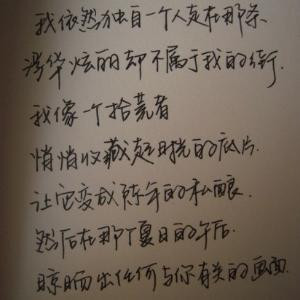 我依然独自一个人走在那条
浮华炫丽却不属于我的街.
我像一个拾荒者
悄悄收藏起时光的底片.
让它变成陈年的私酿.
然后在那个夏日的午后.
晾晒出任何与你有关的画面.